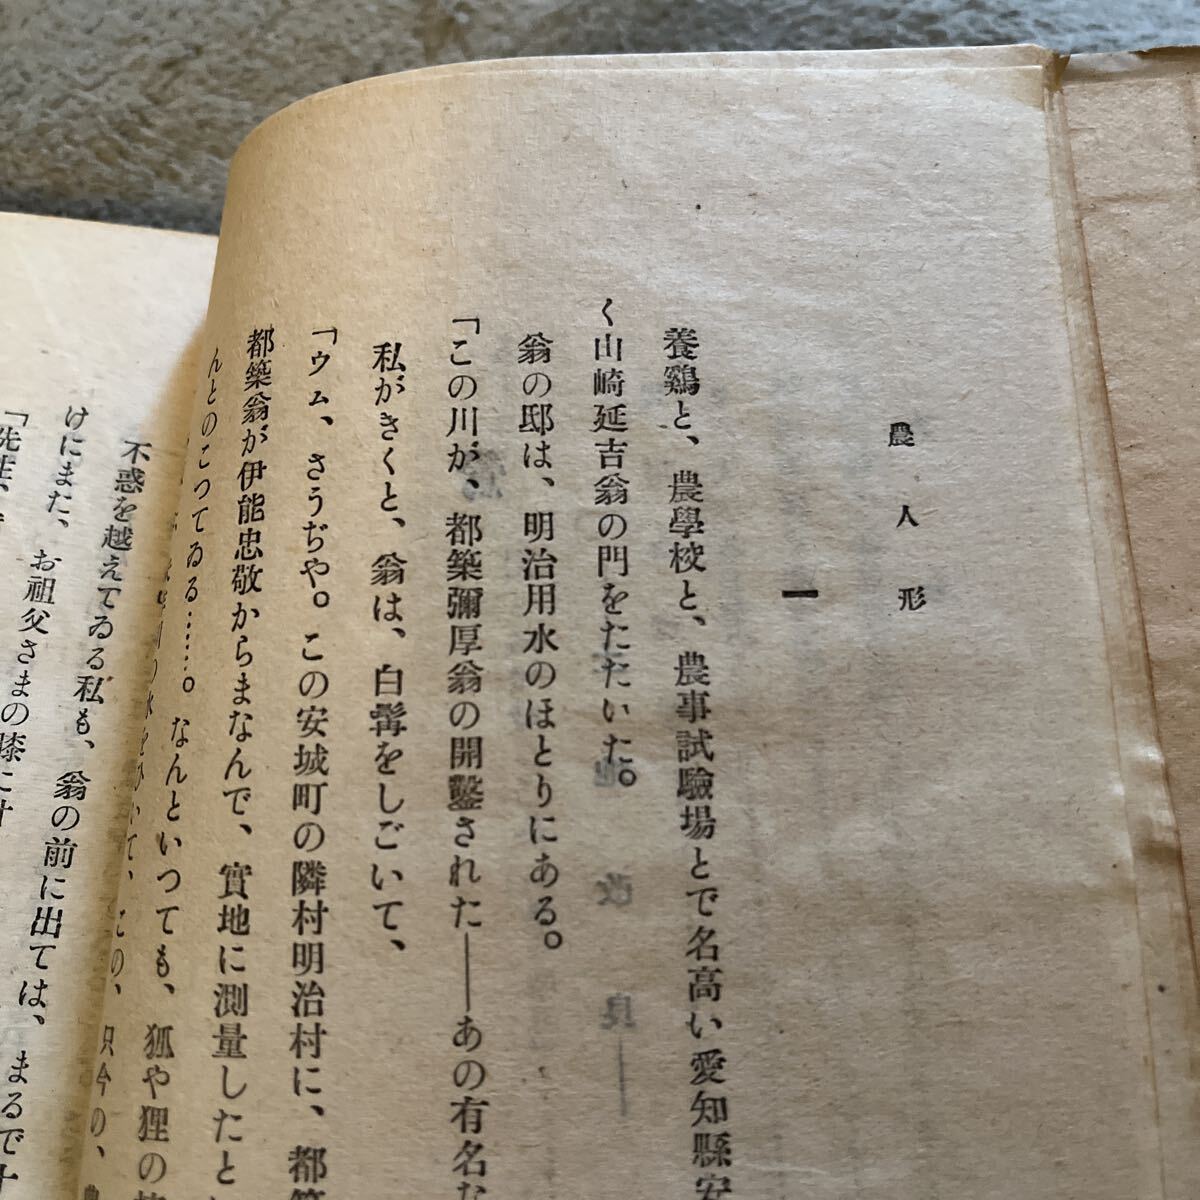 農人形
一
養鷄と、農學校と、農事試驗場とで名高い愛知縣安
く山崎延吉翁の門をたたいた。
翁の邸は、明治用水のほとりにある。
「この川が、都築彌厚翁の開鑿された――あの有名な
私がきくと、翁は、白髯をしごいて、
「ウム、さうぢや。この安城町の隣村明治村に、都築
都築翁が伊能忠敬からまなんで、實地に測量したと
んとのこつてゐる……。なんといつても、狐や狸の
の水をひいて、この、只今の、
不惑を越えてゐる私も、翁の前に出ては、まるで
けにまた、お祖父さまの膝に
「先生、